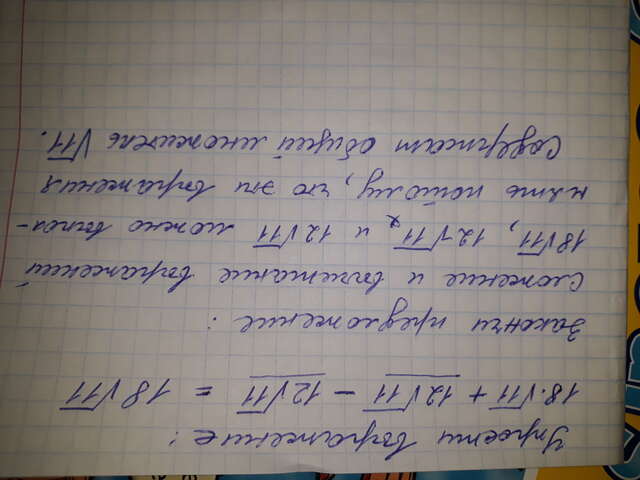 Упрости выражение:
18·√11 + 12√11 − 12√11 = 18√11
Закончи предложение:
сложение и вычитание выражений
18√11, 12√11, и 12√11 можно выпол-
нять потому, что эти выражения
содержат общий множитель √11.